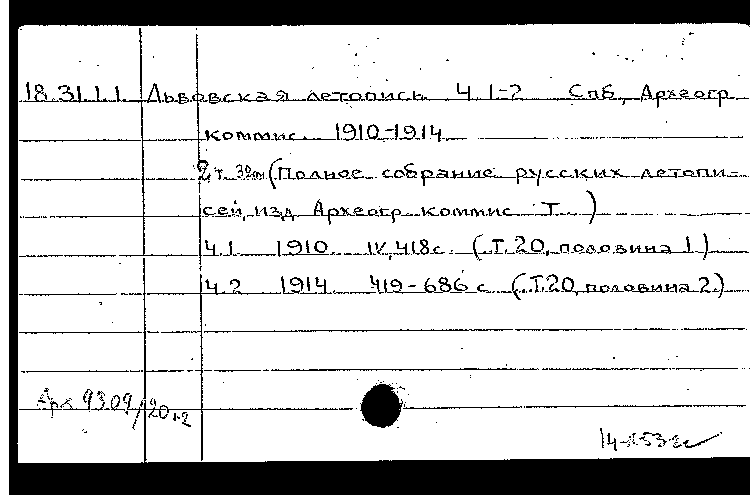 18.31.1.1. Львовская летопись. Ч. 1-2 Спб., Археогр.
коммис. 1910-1914
2 т. (Полное собрание русских летопи-
сей, изд. Археогр. коммис. Т. )
Ч.1 1910. IV, 418 с. (Т. 20, половина 1)
Ч.2 1914. 419-686 с. (Т. 20, половина 2)
9309/20 1-2